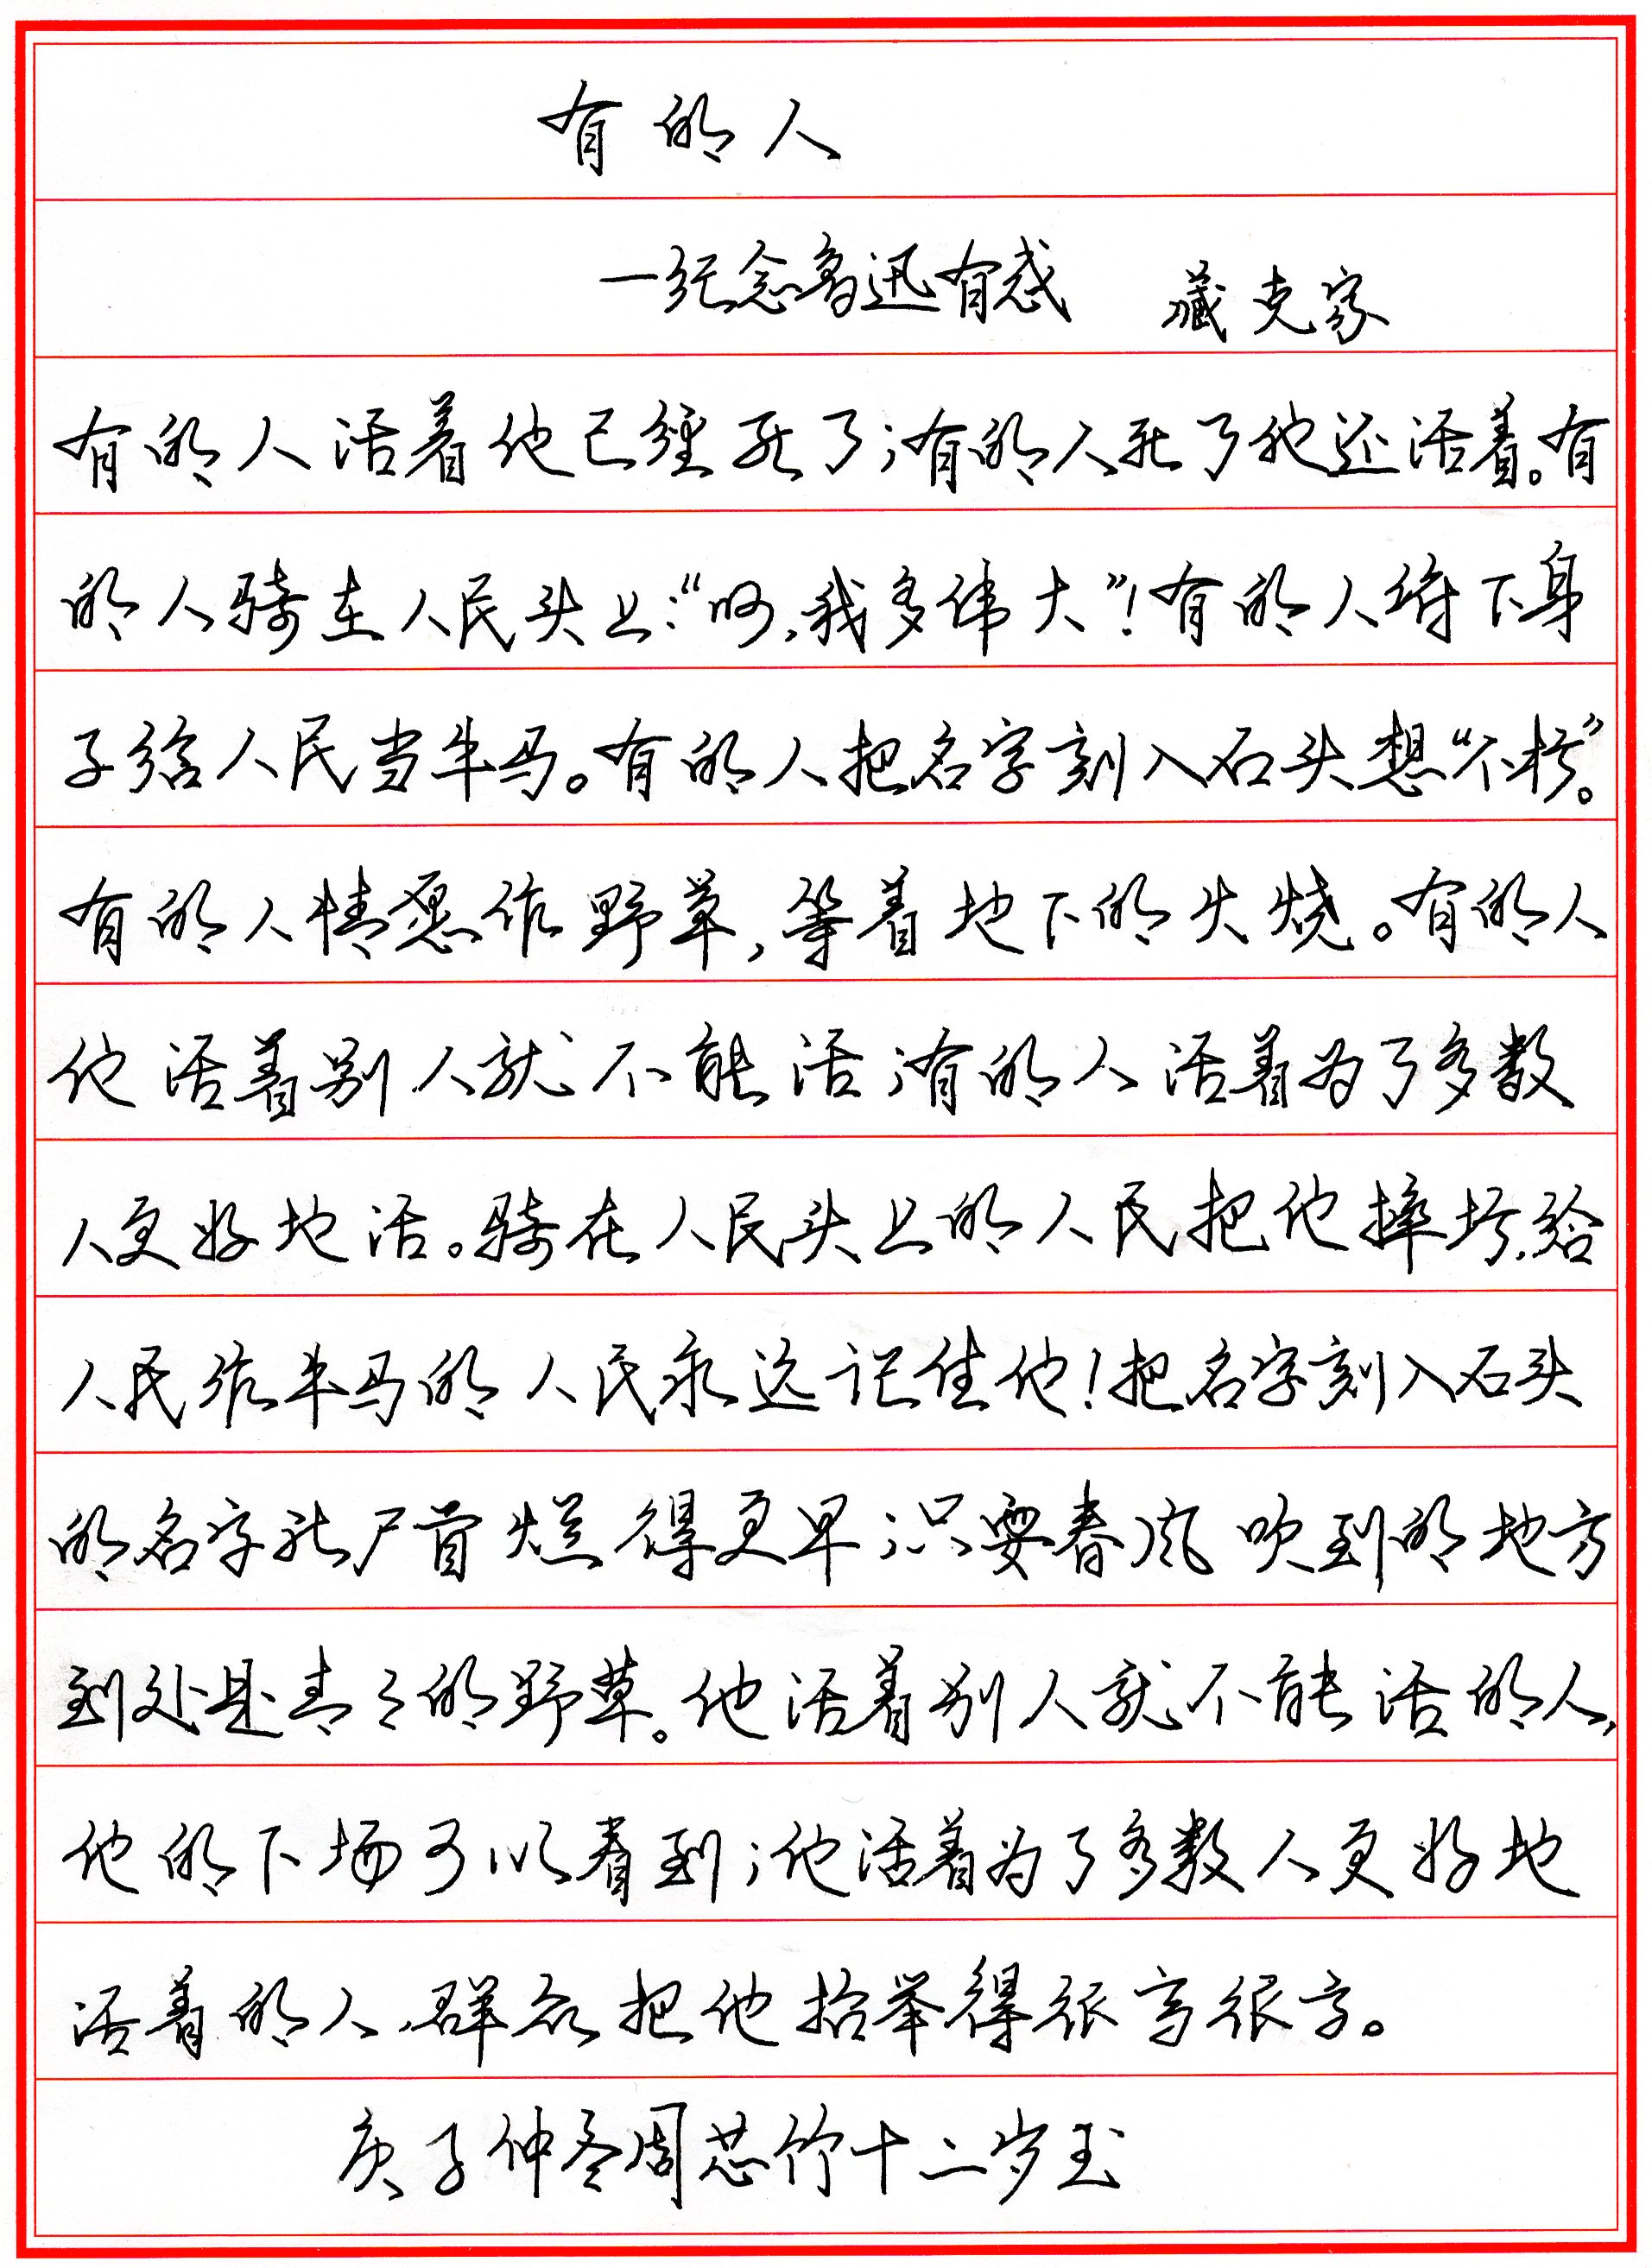 有的人
一纪念鲁迅有感 臧克家
有的人活着他已经死了;有的人死了他还活着。有
的人骑在人民头上:“呵,我多伟大”!有的人俯下身
子给人民当牛马。有的人把名字刻入石头想“不朽”。
有的人情愿作野草,等着地下的火烧。有的人
他活着别人就不能活;有的人活着为了多数
人更好地活。骑在人民头上的人民把他摔垮,给
人民作牛马的人民永远记住他!把名字刻入石头
的名字比尸首烂得更早;只要春风吹到的地方
到处是青々的野草。他活着别人就不能活的人,
他的下场可以看到;他活着为了多数人更好地
活着的人,群众把他抬举得很高很高。
庚子仲冬周芯竹十二岁玉